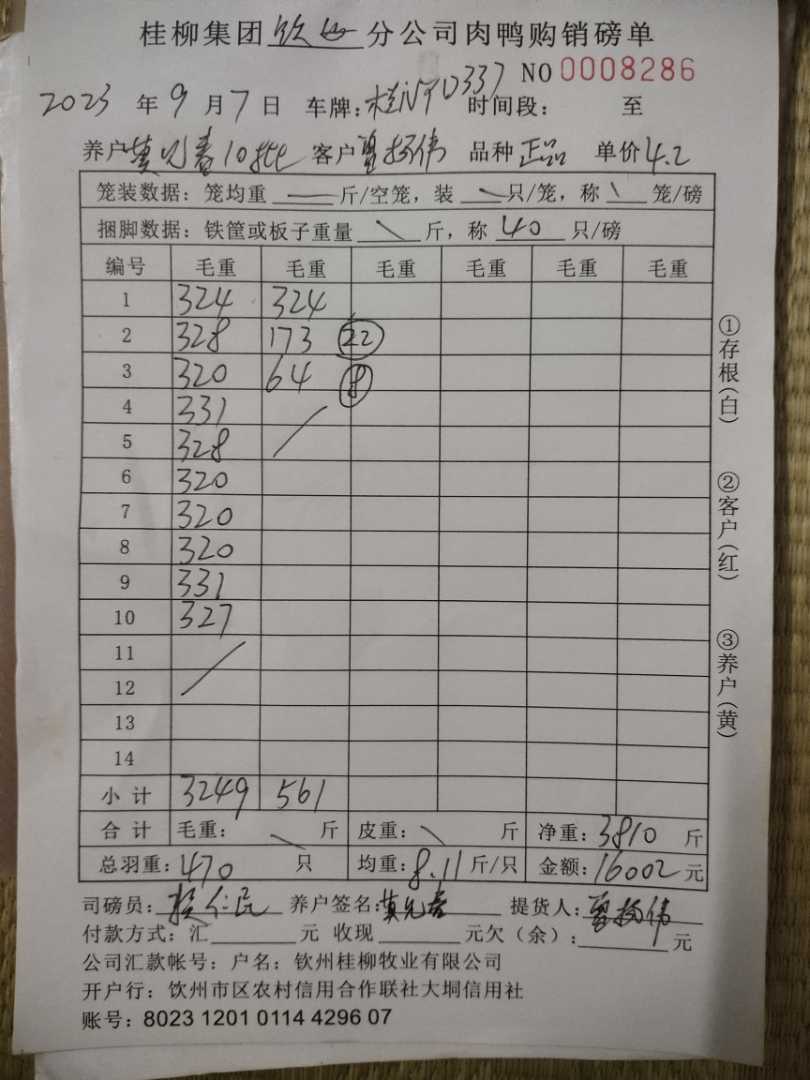 桂柳集团钦州分公司肉鸭购销磅单
NO 0008286
2023 年 9 月 7 日 车牌：桂N 时间段： 至
养户 10批 客户 杨伟 品种 正品 单价 4.2
笼装数据：笼均重 斤/空笼，装 只/笼，称 笼/磅
捆脚数据：铁筐或板子重量 斤，称 40 只/磅
编号 毛重 毛重 毛重 毛重 毛重 毛重
1 324 324
2 328 173 22
3 320 64 8
4 331
5 328
6 320
7 320
8 320
9 331
10 327
11
12
13
14
小计 3249 561
合计 毛重： 斤 皮重： 斤 净重：3810 斤
总羽重：470 只 均重：8.11 斤/只 金额：16002 元
司磅员： 仁民 养户签名： 提货人： 杨伟
付款方式：汇 元 收现 元欠（余）： 元
公司汇款帐号：户名：钦州桂柳牧业有限公司
开户行：钦州市区农村信用合作联社大垌信用社
账号：8023 1201 0114 4296 07
①存根（白）
②客户（红）
③养户（黄）